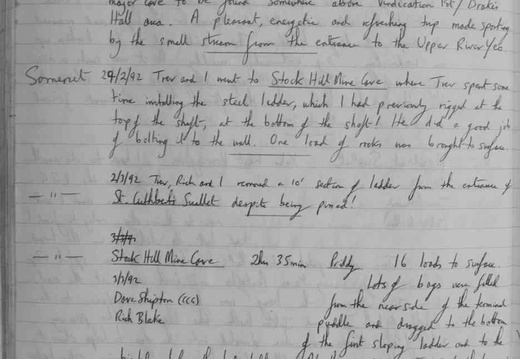 major cave to be found somewhere above Vindication 1st / Drake's
Hall area. A pleasant, energetic and refreshing trip made sporting
by the small stream from the entrance to the Upper River Yeo.
Somerset 29/2/92 Trev and I went to Stock Hill Mine Cave where Trev spent some
time installing the steel ladder, which I had previously rigged at the
top of the shaft, at the bottom of the shaft! He did a good job
of bolting it to the wall. One load of rocks was brought to surface.
2/3/92 Trev, Rich and I removed a 10' section of ladder from the entrance of
— " — St. Cuthbert's Swallet despite being pissed!
3/3/92
— " — Stock Hill Mine Cave 2hrs 35min Priddy 16 loads to surface.
3/3/92 Lots of bags were filled
Dave Shipton (CCC) from the near side of the terminal
Rich Blake puddle and dragged to the bottom
of the first sloping ladder and to the